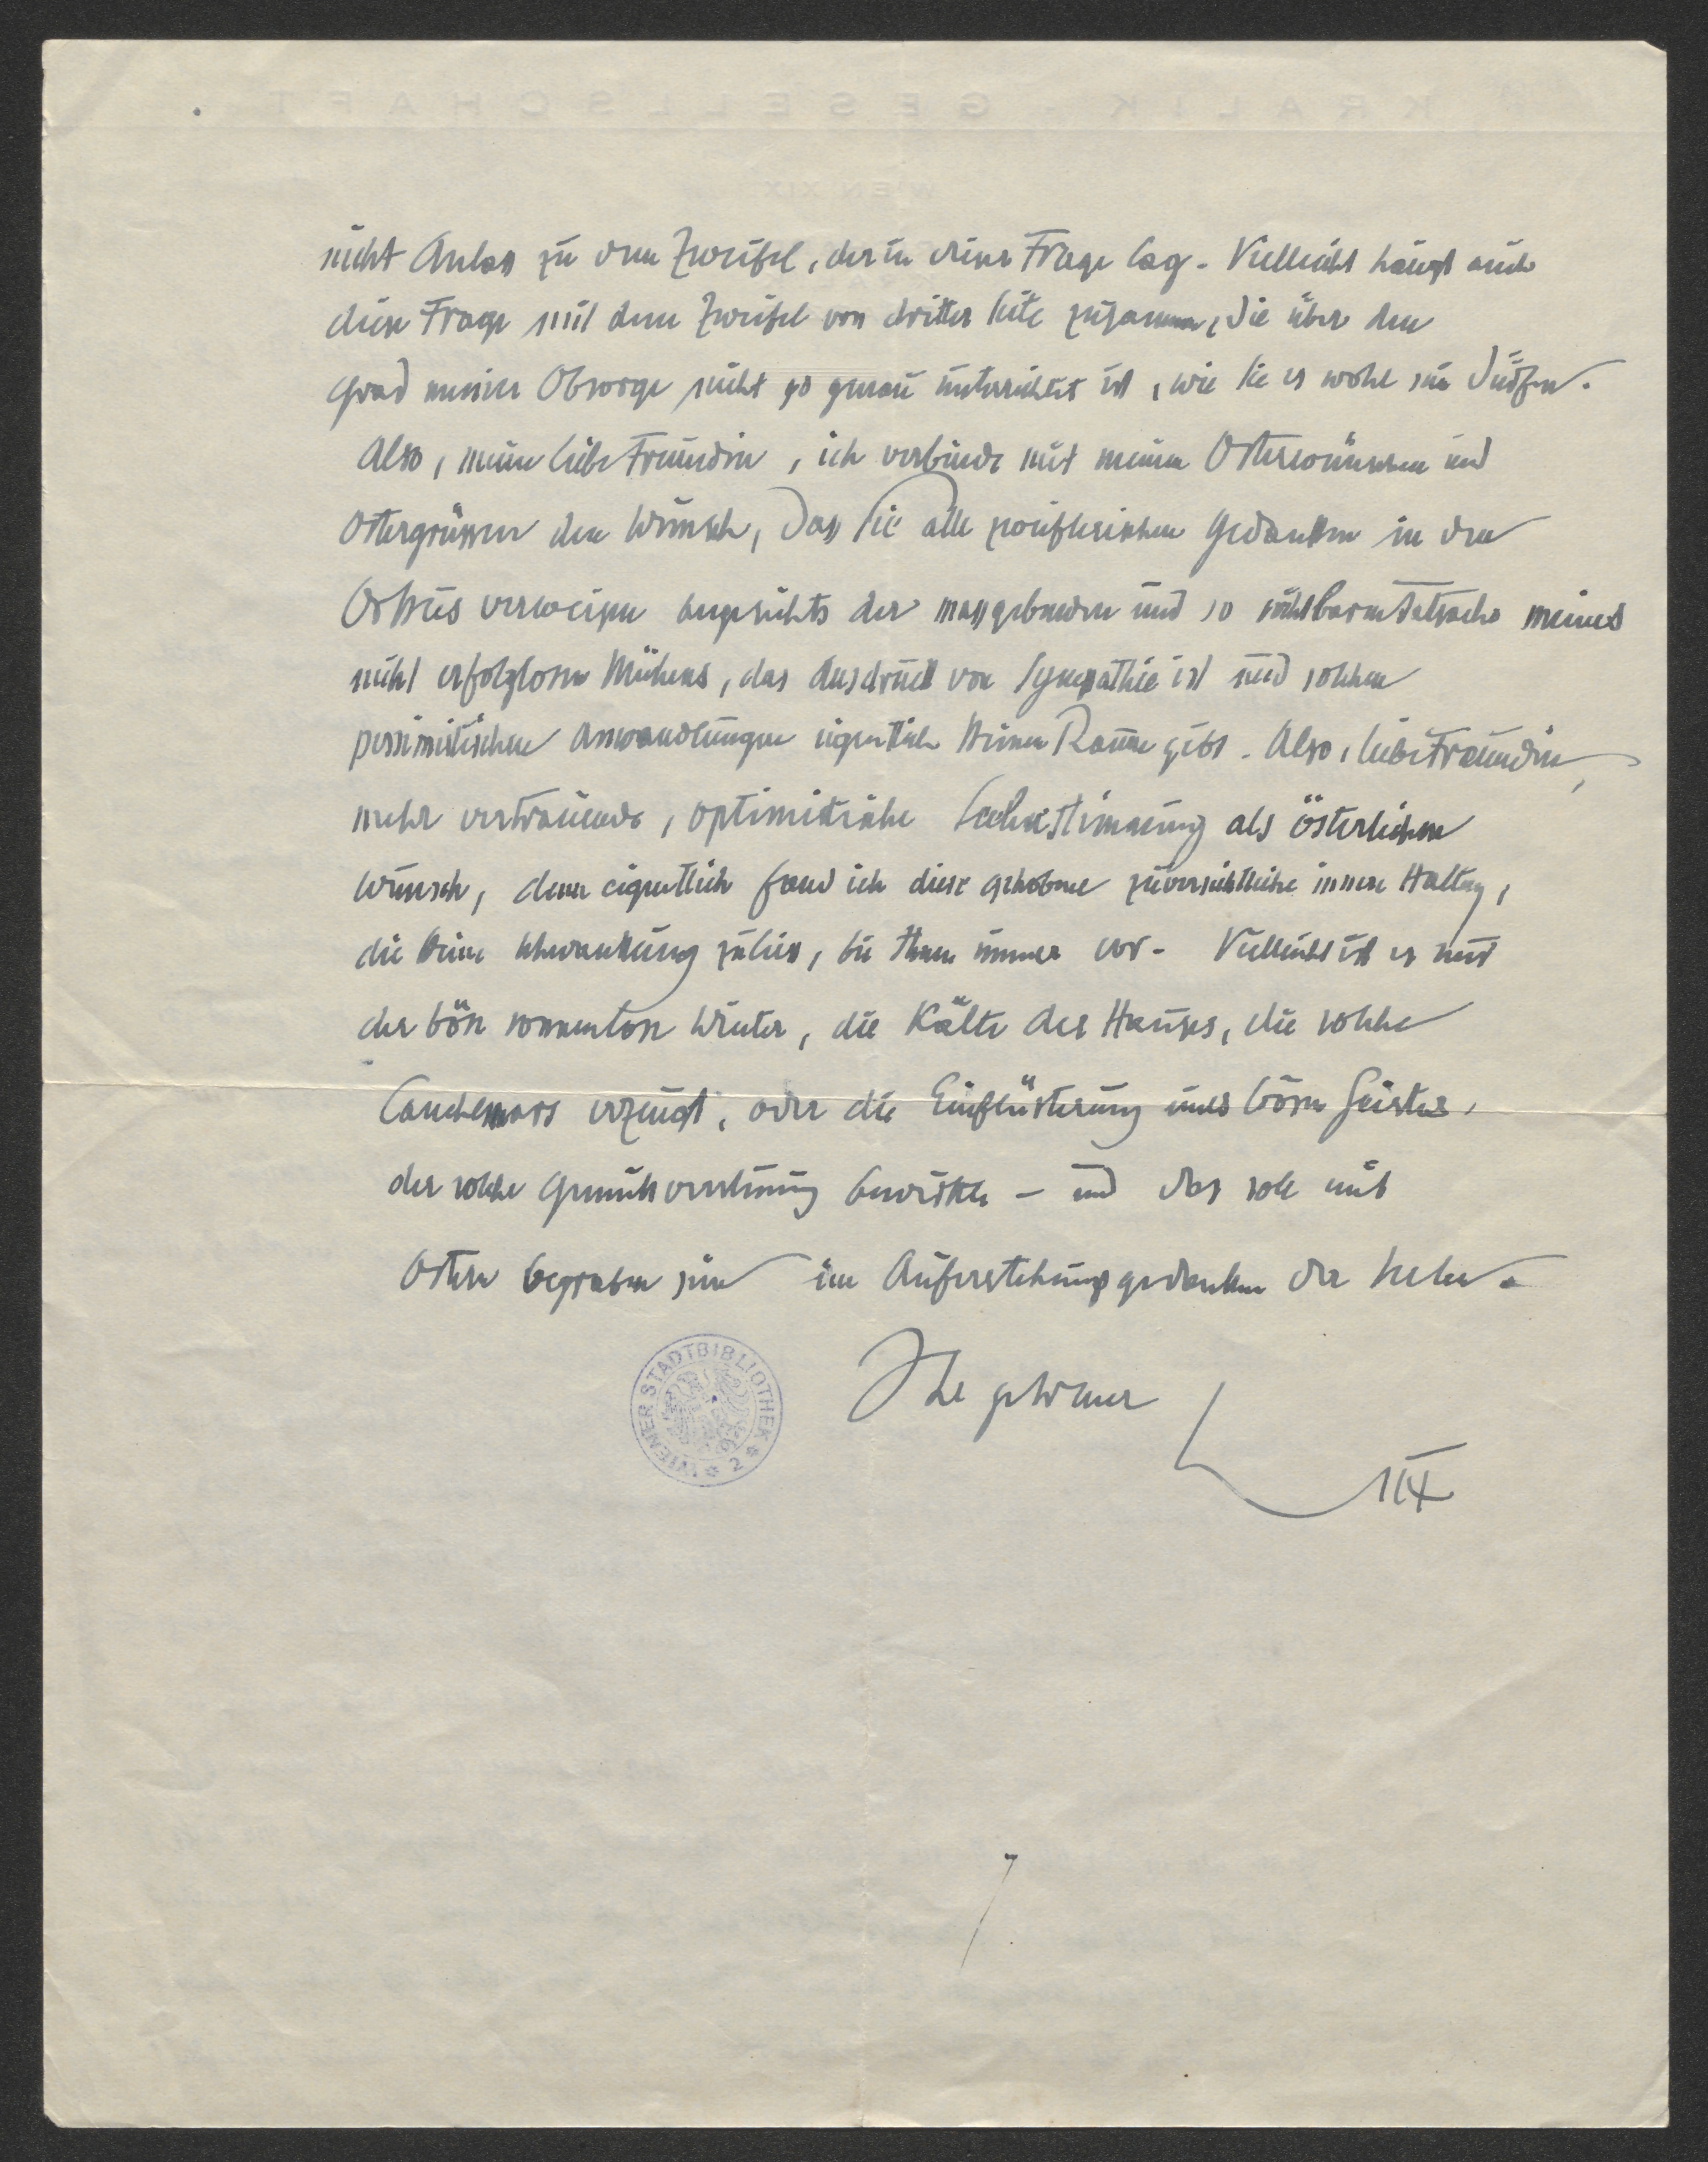 nicht Anlass zu dem Zweifel, der in dieser Frage lag. Vielleicht hängt auch
diese Frage mit dem Zweifel von dritter Seite zusammen, die über den
Grad meiner Obsorge nicht so genau unterrichtet ist, wie Sie es wohl sein dürfen.
Also, meine liebe Freundin, ich verbinde mit meinen Osterwünschen und
Ostergrüssen den Wunsch, dass Sie alle zweiflerischen Gedanken in den
Orkus verweisen angesichts der massgebenden und so sichtbaren Tatsache meines
nicht erfolglosen Mühens, das Ausdruck von Sympathie ist und solchen
pessimistischen Anwandlungen eigentlich keinen Raum gibt. Also, liebe Freundin,
mehr vertrauende, optimistische Seelenstimmung als österlichen
Wunsch, denn eigentlich fand ich diese gehobene zuversichtliche innere Haltung,
die keine Schwankung zuliess, bei Ihnen immer vor. Vielleicht ist es nur
der böse sonnenlose Winter, die Kälte des Hauses, die solche
Cauchemars erzeugt, oder die Einflüsterung eines bösen Geistes,
der solche Gemütsverstimmung bewirkte - und das soll mit
Ostern begraben sein im Auferstehungsgedanken der
Ihr
WIENER STADTBIBLIOTHEK * 2 *
7
KRALIK - GESELLSCHAFT
WIEN XIX